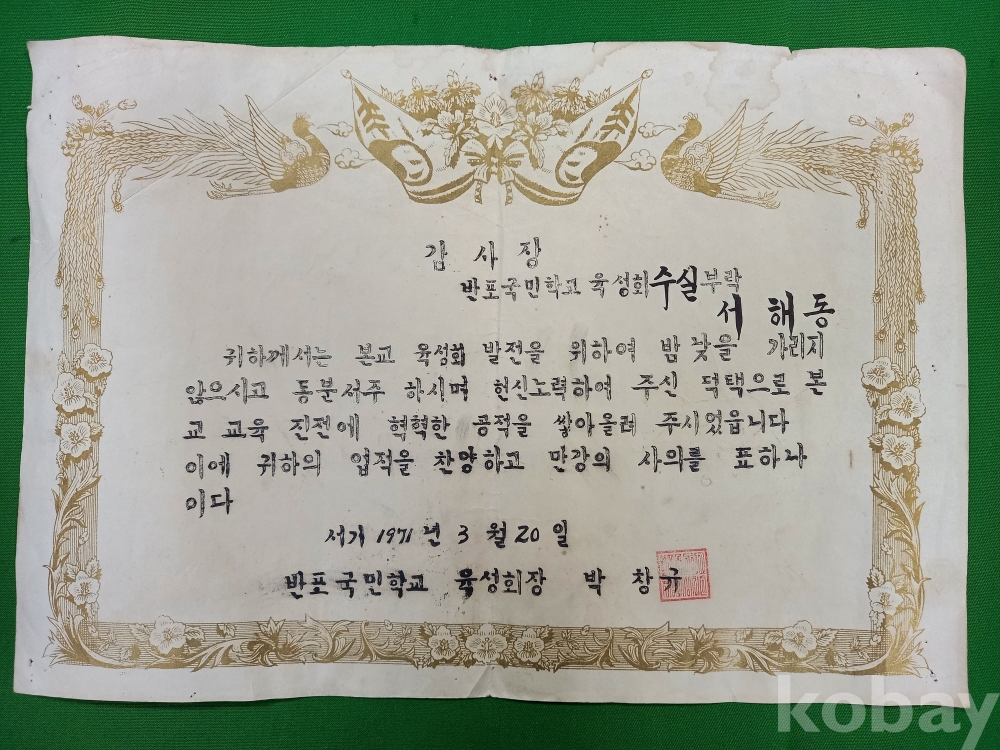 감사장
반포국민학교 육성회 수실부락
서해동
귀하께서는 본교 육성회 발전을 위하여 밤낮을 가리지
않으시고 동분서주 하시며 헌신노력하여 주신 덕택으로 본
교 교육 진전에 혁혁한 공적을 쌓아올려 주시었읍니다
이에 귀하의 업적을 찬양하고 만강의 사의를 표하나
이다
서기 1971년 3월 20일
반포국민학교 육성회장 박창규
kobay